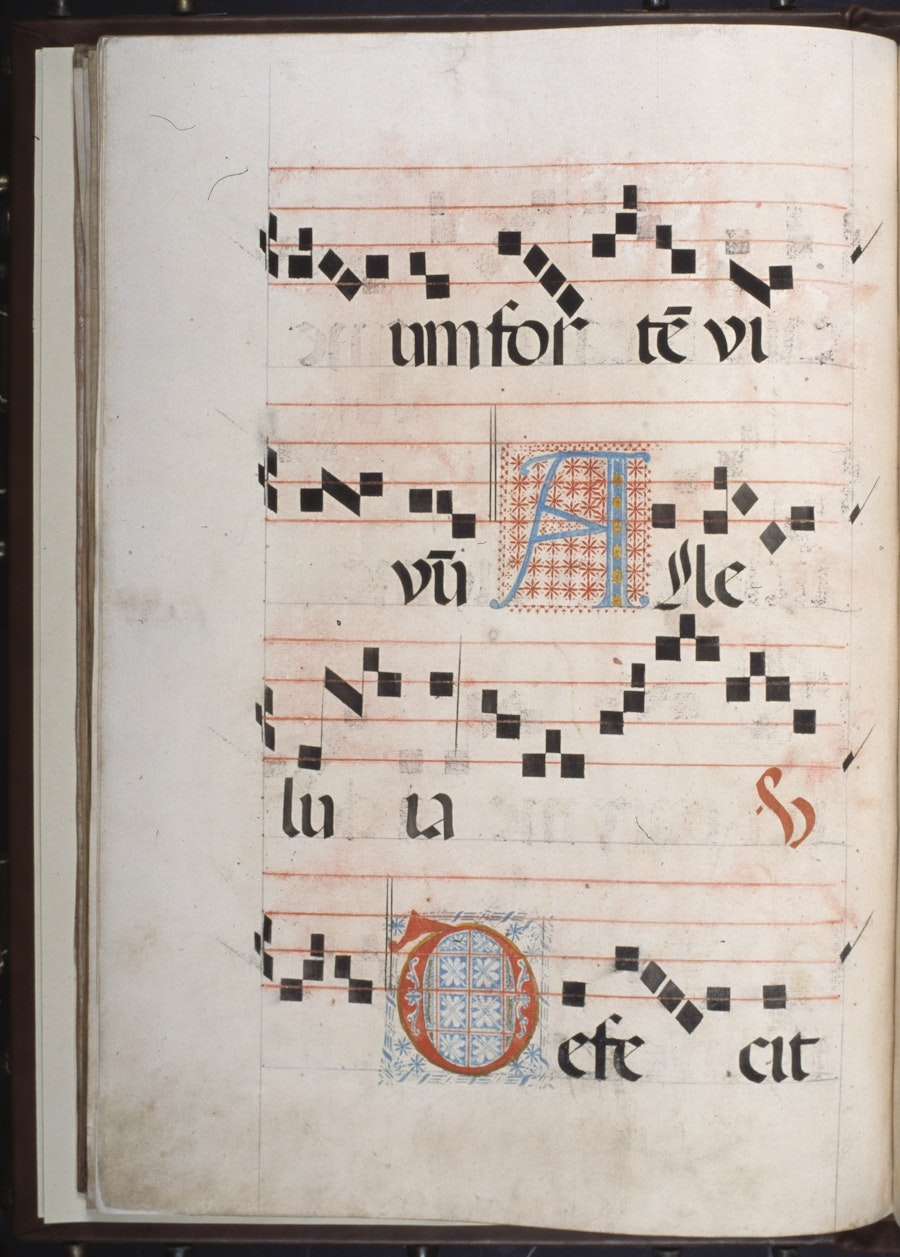 um for tē vi
vū Alle
lu ia ℣
Defe cit